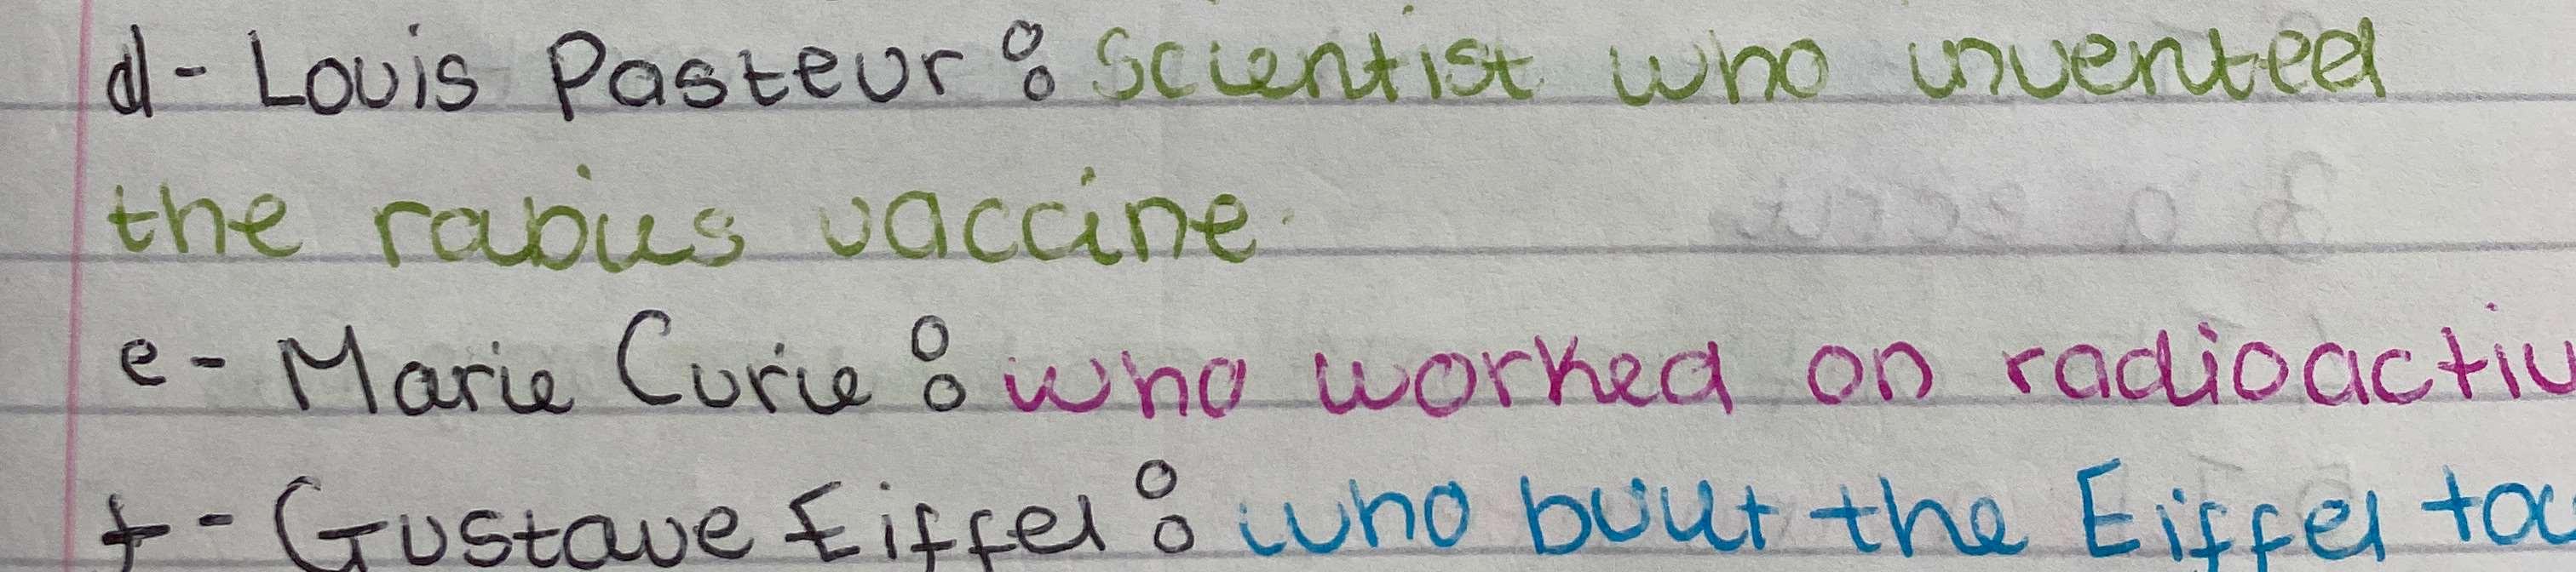 d- Louis Pasteur : Scientist who invented
the rabies vaccine.
e- Marie Curie : who worked on radioactiv
f- Gustave Eiffel : who built the Eiffel to